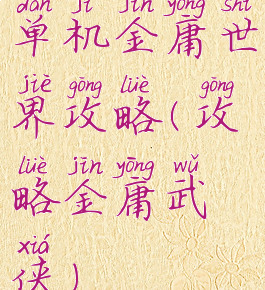 dān jī jīn yōng shì
单机金庸世
jiè gōng lüè gōng
界攻略(攻
lüè jīn yōng wǔ
略金庸武
xiá
侠)